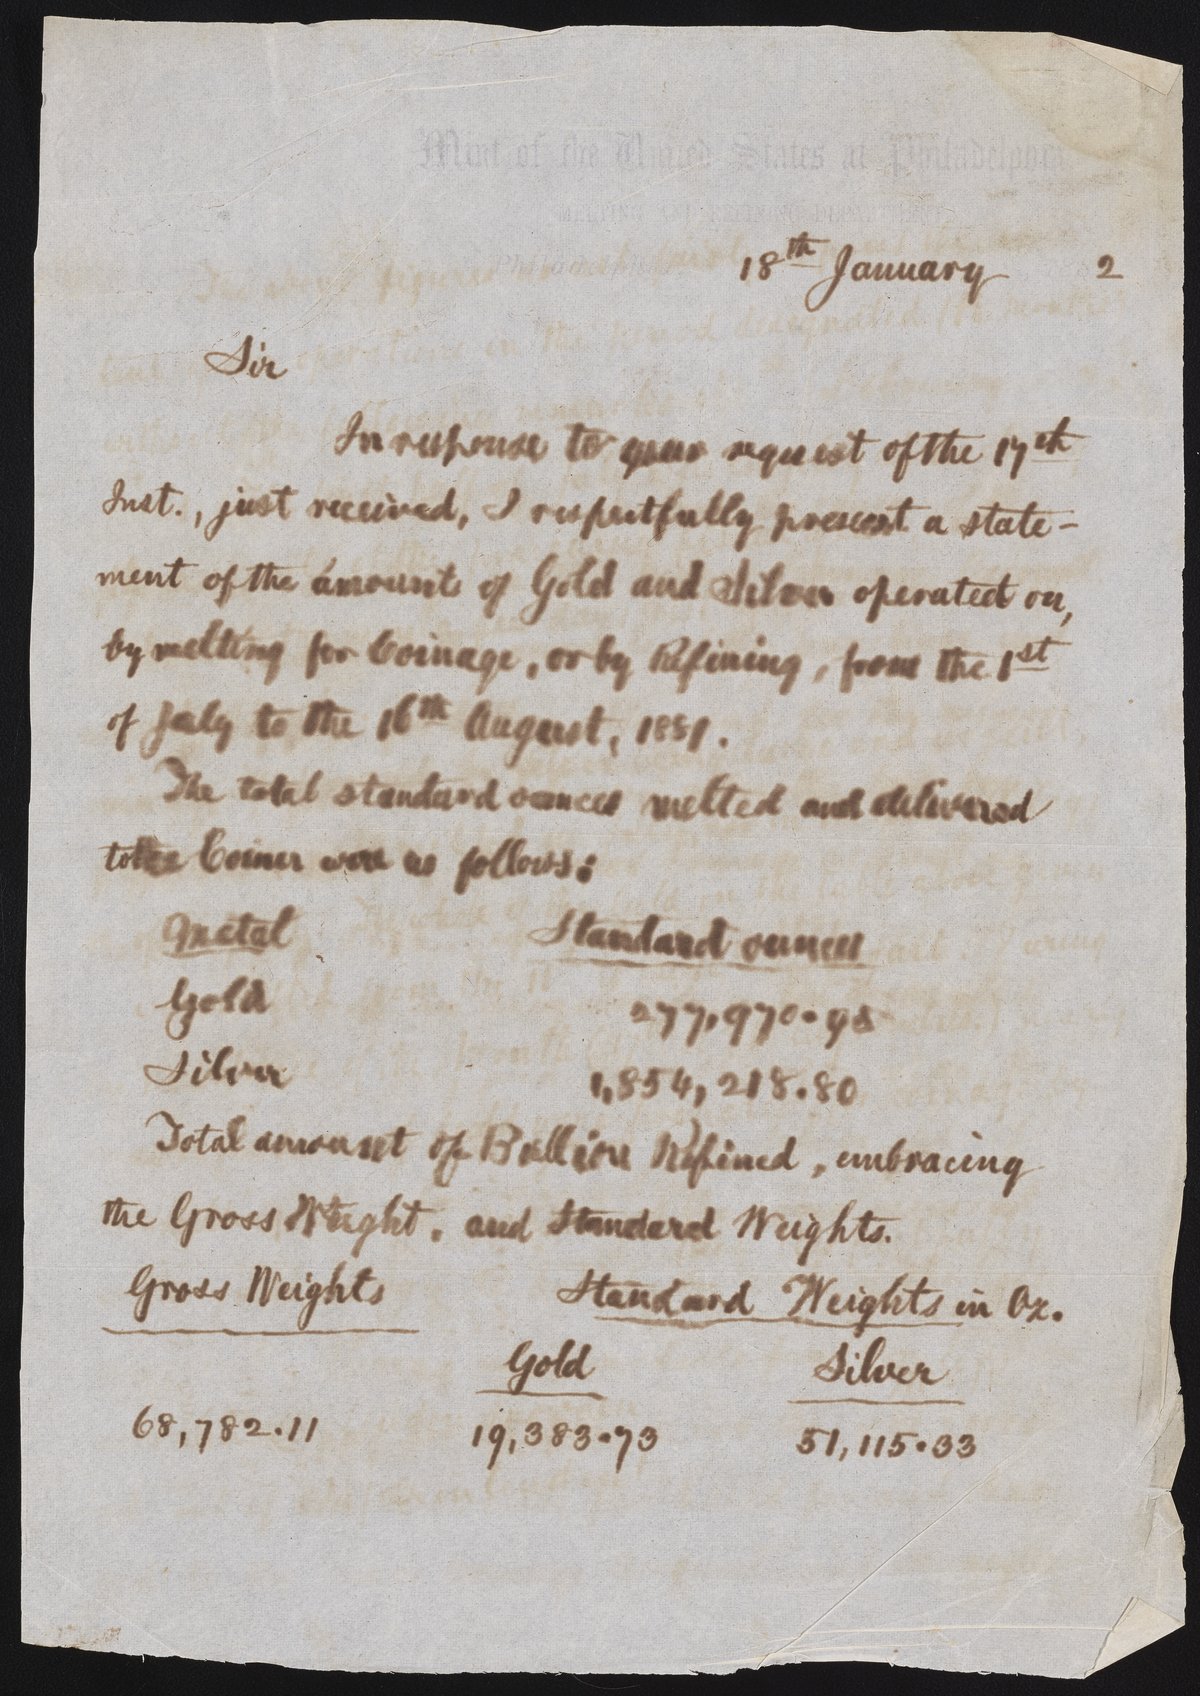 Mint of the United States at Philadelphia
MELTING AND REFINING DEPARTMENT
Philadelphia 18th January 2
Sir
In response to your request of the 17th
Inst., just received, I respectfully present a state-
ment of the amounts of Gold and Silver operated on,
by melting for Coinage, or by Refining, from the 1st
of July to the 16th August, 1881.
The total standard ounces melted and delivered
to the Coiner were as follows:
Metal Standard ounces
Gold 277,970.98
Silver 1,854,218.80
Total amount of Bullion Refined, embracing
the Gross Weight, and Standard Weights.
Gross Weights Standard Weights in Oz.
Gold Silver
68,782.11 19,383.73 51,115.33